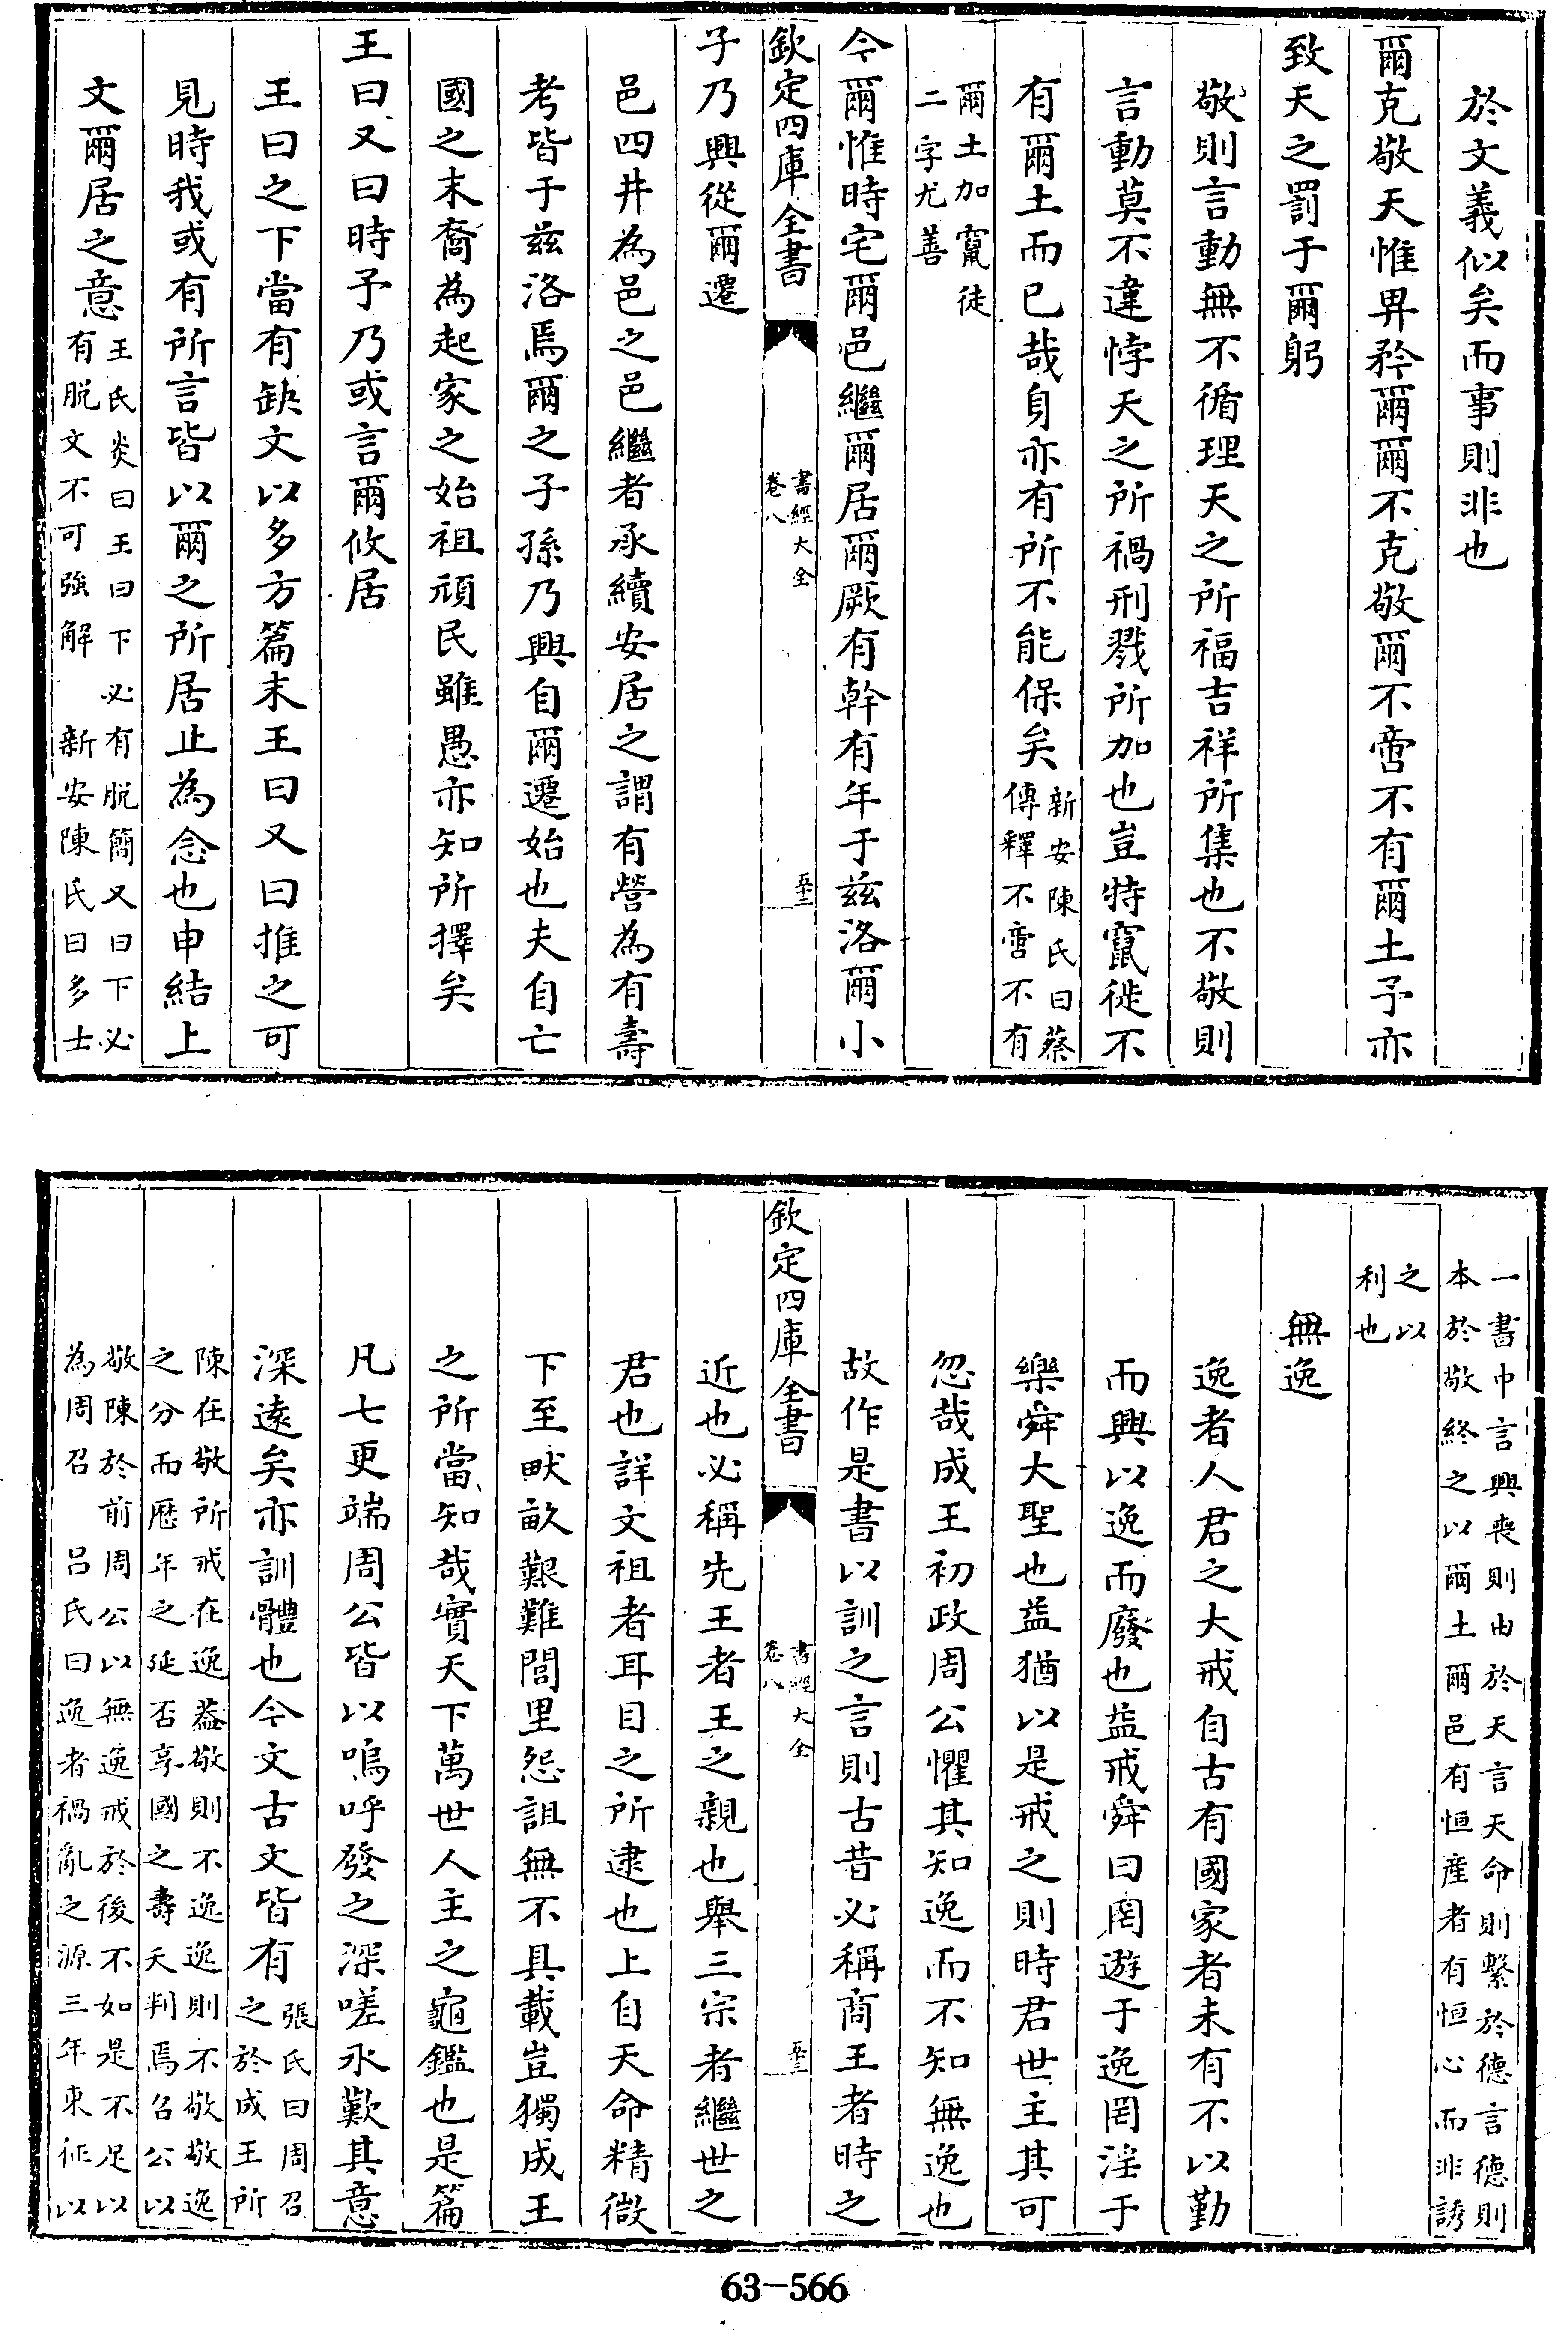 於文義似矣而事則非也
爾克敬天惟畀矜爾爾不克敬爾不啻不有爾土予亦
致天之罰于爾躬
敬則言動無不循理天之所福吉祥所集也不敬則
言動莫不違悖天之所禍刑戮所加也豈特竄徙不
有爾土而已哉身亦有所不能保矣
新安陳氏曰蔡
傳釋不啻不有
爾土加竄徙
二字尤善
今爾惟時宅爾邑繼爾居爾厥有幹有年于茲洛爾小
欽定四庫全書
書經大全
卷八
五十二
子乃興從爾遷
邑四井為邑之邑繼者承續安居之謂有營為有壽
考皆于茲洛焉爾之子孫乃興自爾遷始也夫自亡
國之末裔為起家之始祖頑民雖愚亦知所擇矣
王曰又曰時予乃或言爾攸居
王曰之下當有缺文以多方篇末王曰又曰推之可
見時我或有所言皆以爾之所居止為念也申結上
文爾居之意
王氏炎曰王曰下必有脫簡又曰下必
有脫文不可強解 新安陳氏曰多士
一書中言興喪則由於天言天命則繫於德言德則
本於敬終之以爾土爾邑有恒産者有恒心而非誘
之以
利也
無逸
逸者人君之大戒自古有國家者未有不以勤
而興以逸而廢也益戒舜曰罔遊于逸罔淫于
樂舜大聖也益猶以是戒之則時君世主其可
忽哉成王初政周公懼其知逸而不知無逸也
故作是書以訓之言則古昔必稱商王者時之
欽定四庫全書
書經大全
卷八
五十三
近也必稱先王者王之親也舉三宗者繼世之
君也詳文祖者耳目之所逮也上自天命精微
下至畎畝艱難閭里怨詛無不具載豈獨成王
之所當知哉實天下萬世人主之龜鑑也是篇
凡七更端周公皆以嗚呼發之深嗟永歎其意
深遠矣亦訓體也今文古文皆有
張氏曰周召
之於成王所
陳在敬所戒在逸蓋敬則不逸逸則不敬敬逸
之分而歷年之延否享國之壽夭判焉召公以
敬陳於前周公以無逸戒於後不如是不足以
為周召 呂氏曰逸者禍亂之源三年東征以
63-566